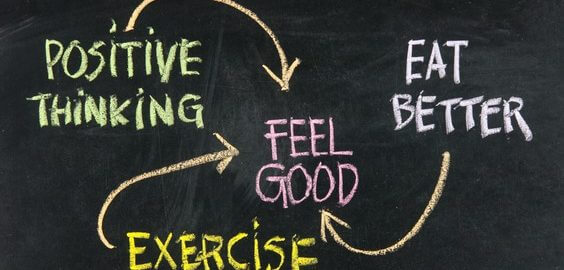 POSITIVE
THINKING
EAT
BETTER
FEEL
GOOD
EXERCISE